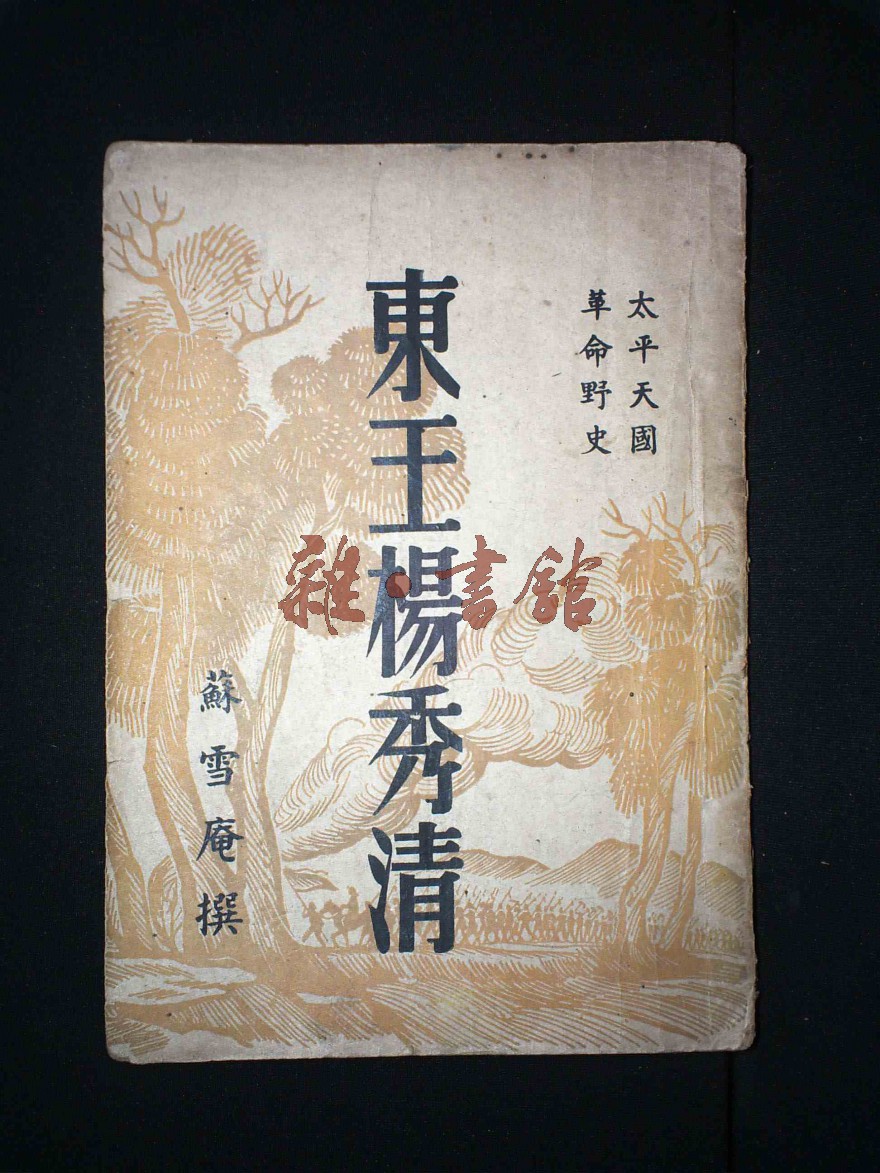 太平天國
革命野史
東王楊秀清
蘇雪庵撰
雜·書館